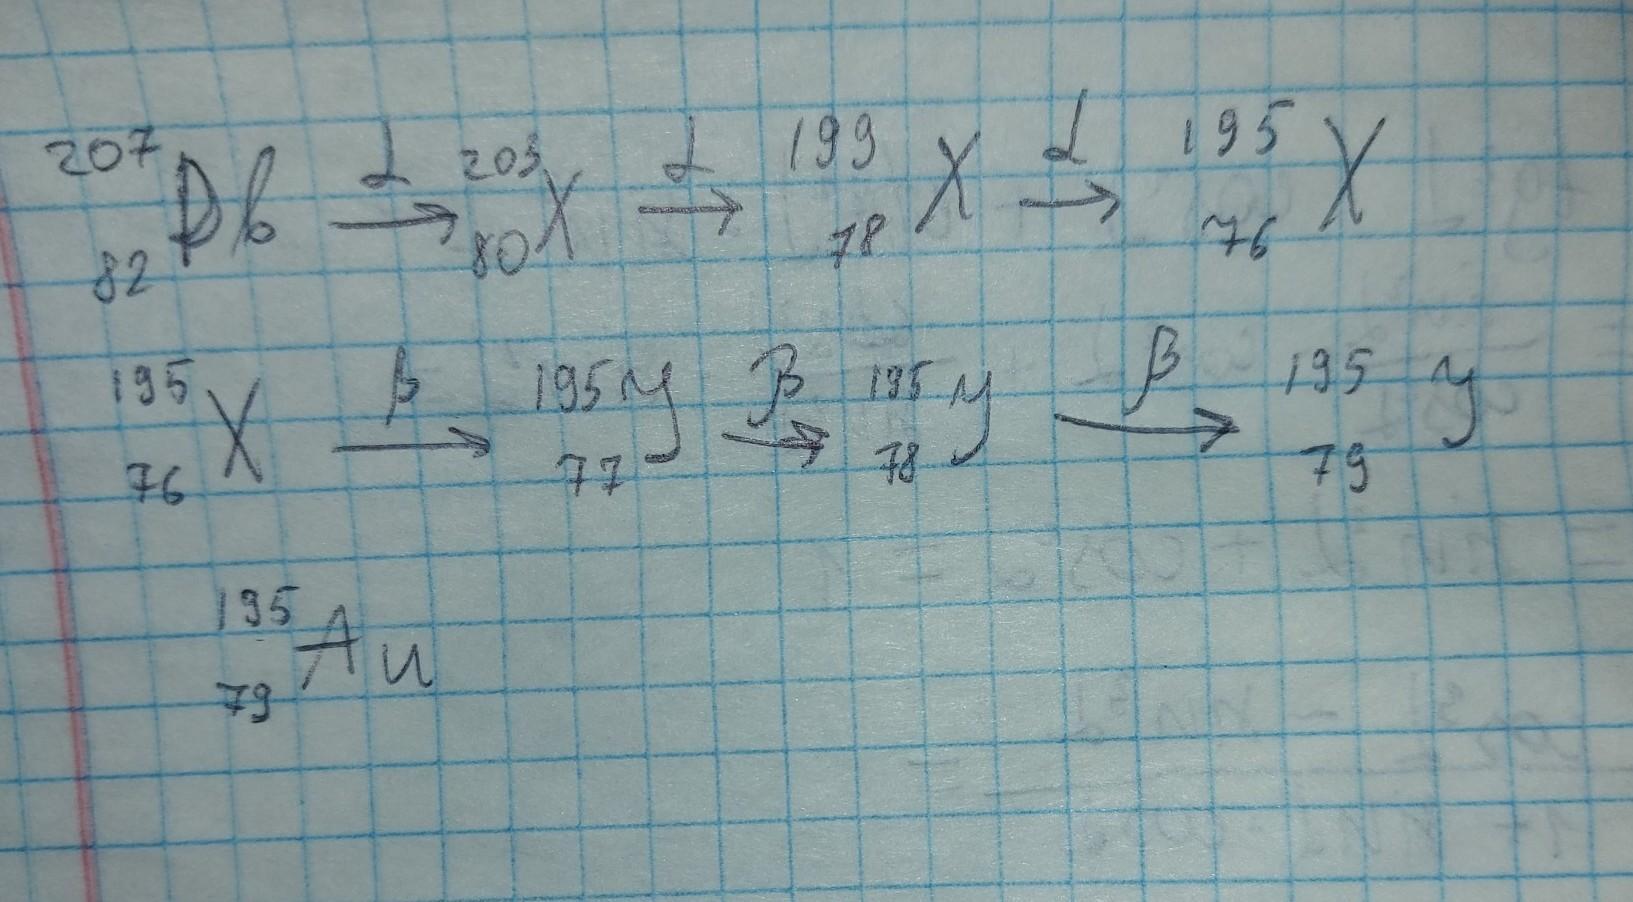 ²⁰⁷₈₂Pb α→ ²⁰³₈₀X α→ ¹⁹⁹₇₈X α→ ¹⁹⁵₇₆X
¹⁹⁵₇₆X β→ ¹⁹⁵₇₇Y β→ ¹⁹⁵₇₈Y β→ ¹⁹⁵₇₉Y
¹⁹⁵₇₉Au